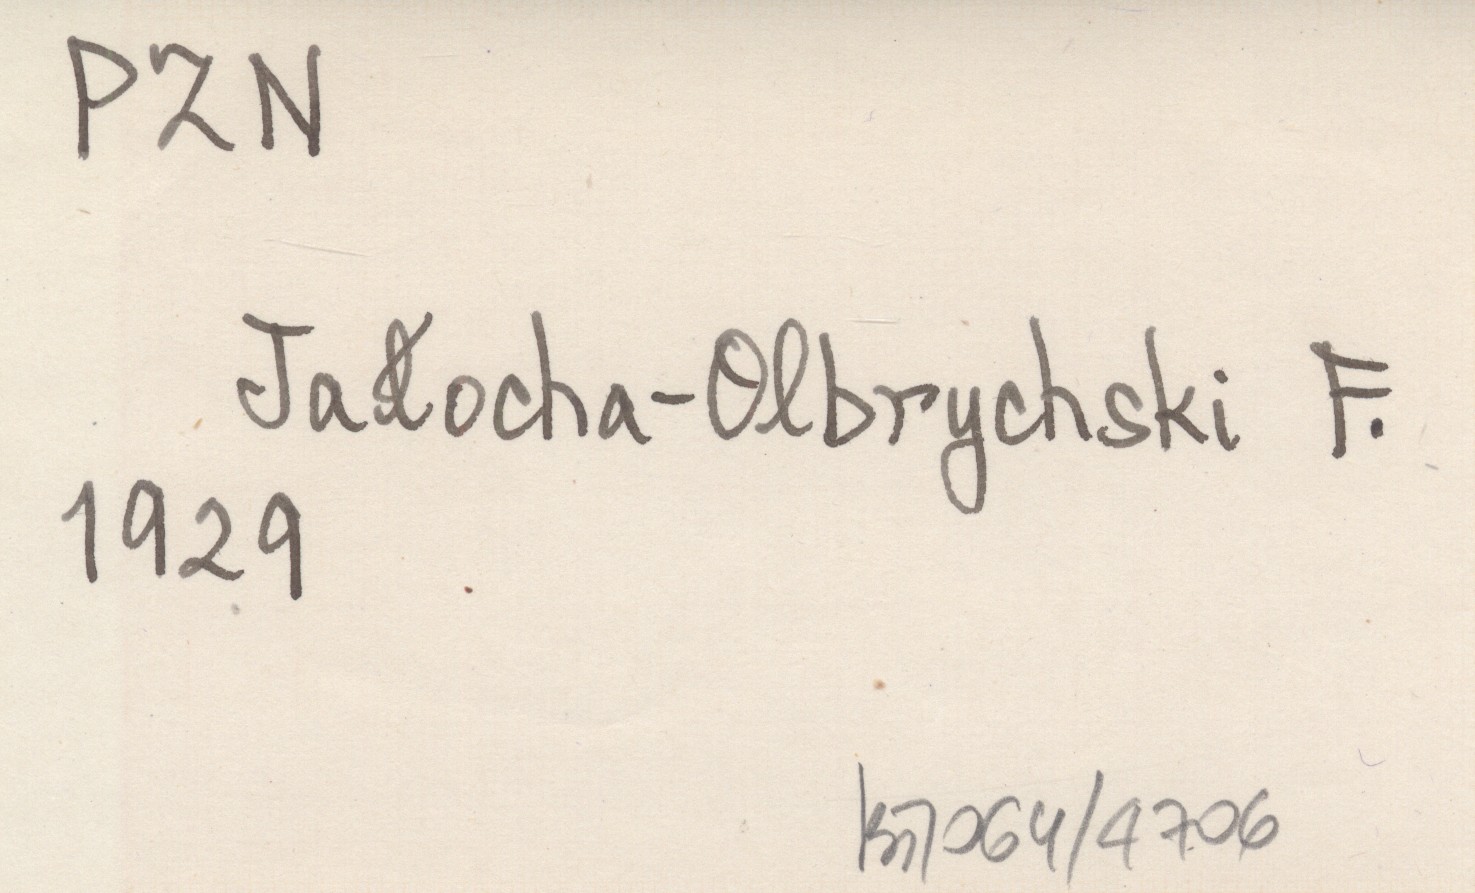 PZN
Jałocha-Olbrychski F.
1929
064/4706